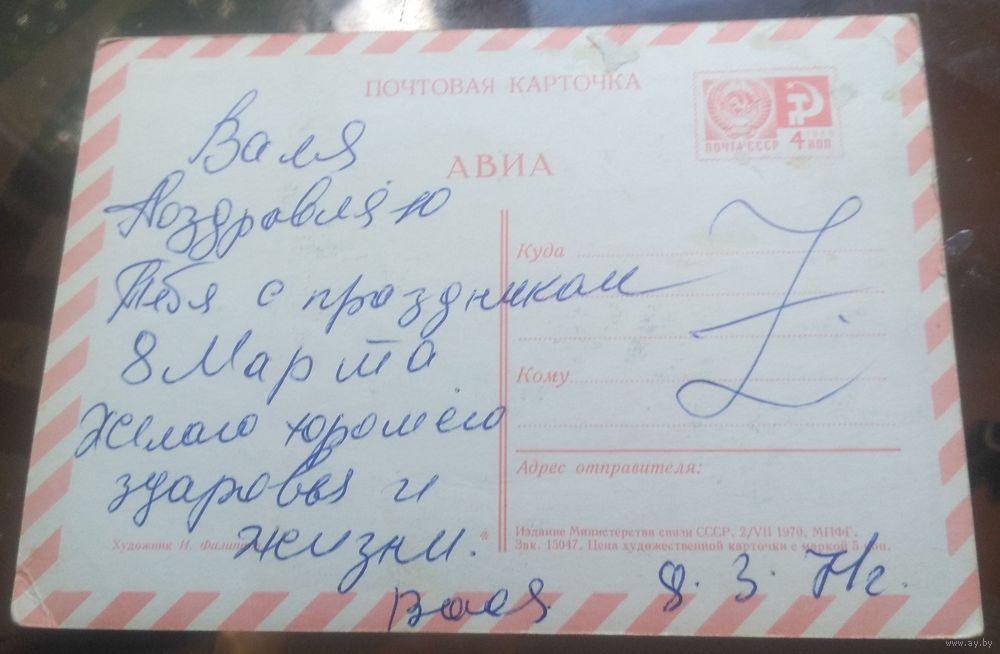 ПОЧТОВАЯ КАРТОЧКА
АВИА
ПОЧТА СССР 4 КОП
Валя
Поздравляю
Тебя с праздником
8 Марта
Желаю хорошего
здаровья и
жизни.
Вася
8. 3. 71г.
Куда
Кому
Адрес отправителя:
Художник И.
Издание Министерства связи СССР. 2/VII 1970. МПФГ.
Зак. 15047. Цена художественной карточки с маркой 5 коп.
www.ay.by